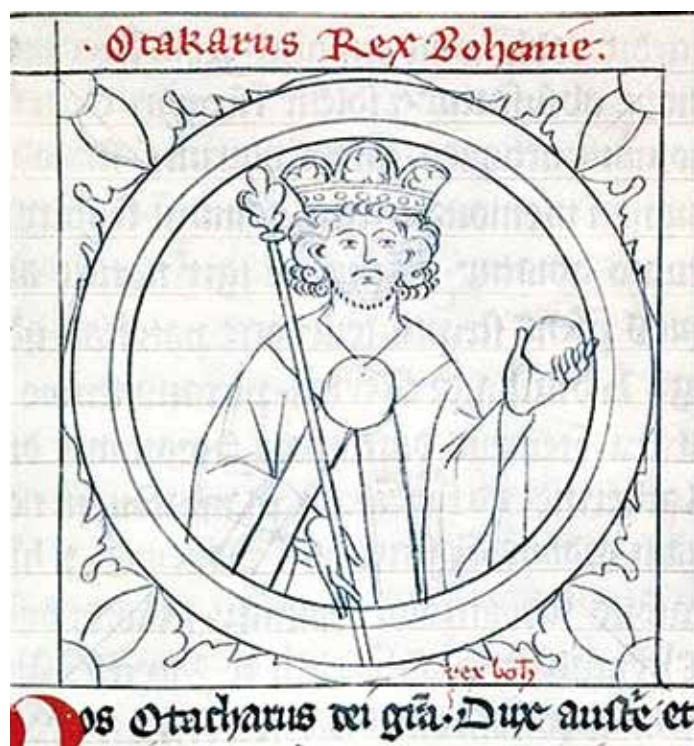 · Otakarus Rex Bohemie.
rex boh
Nos Otacharus dei gr̄a · Dux austē et